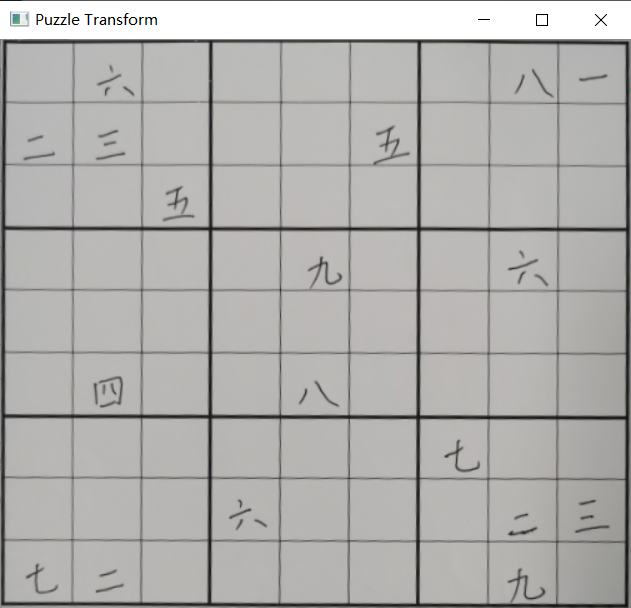 Puzzle Transform
六 八 一
二 三 五
五
九 六
四 八
七
六 二 三
七 二 九